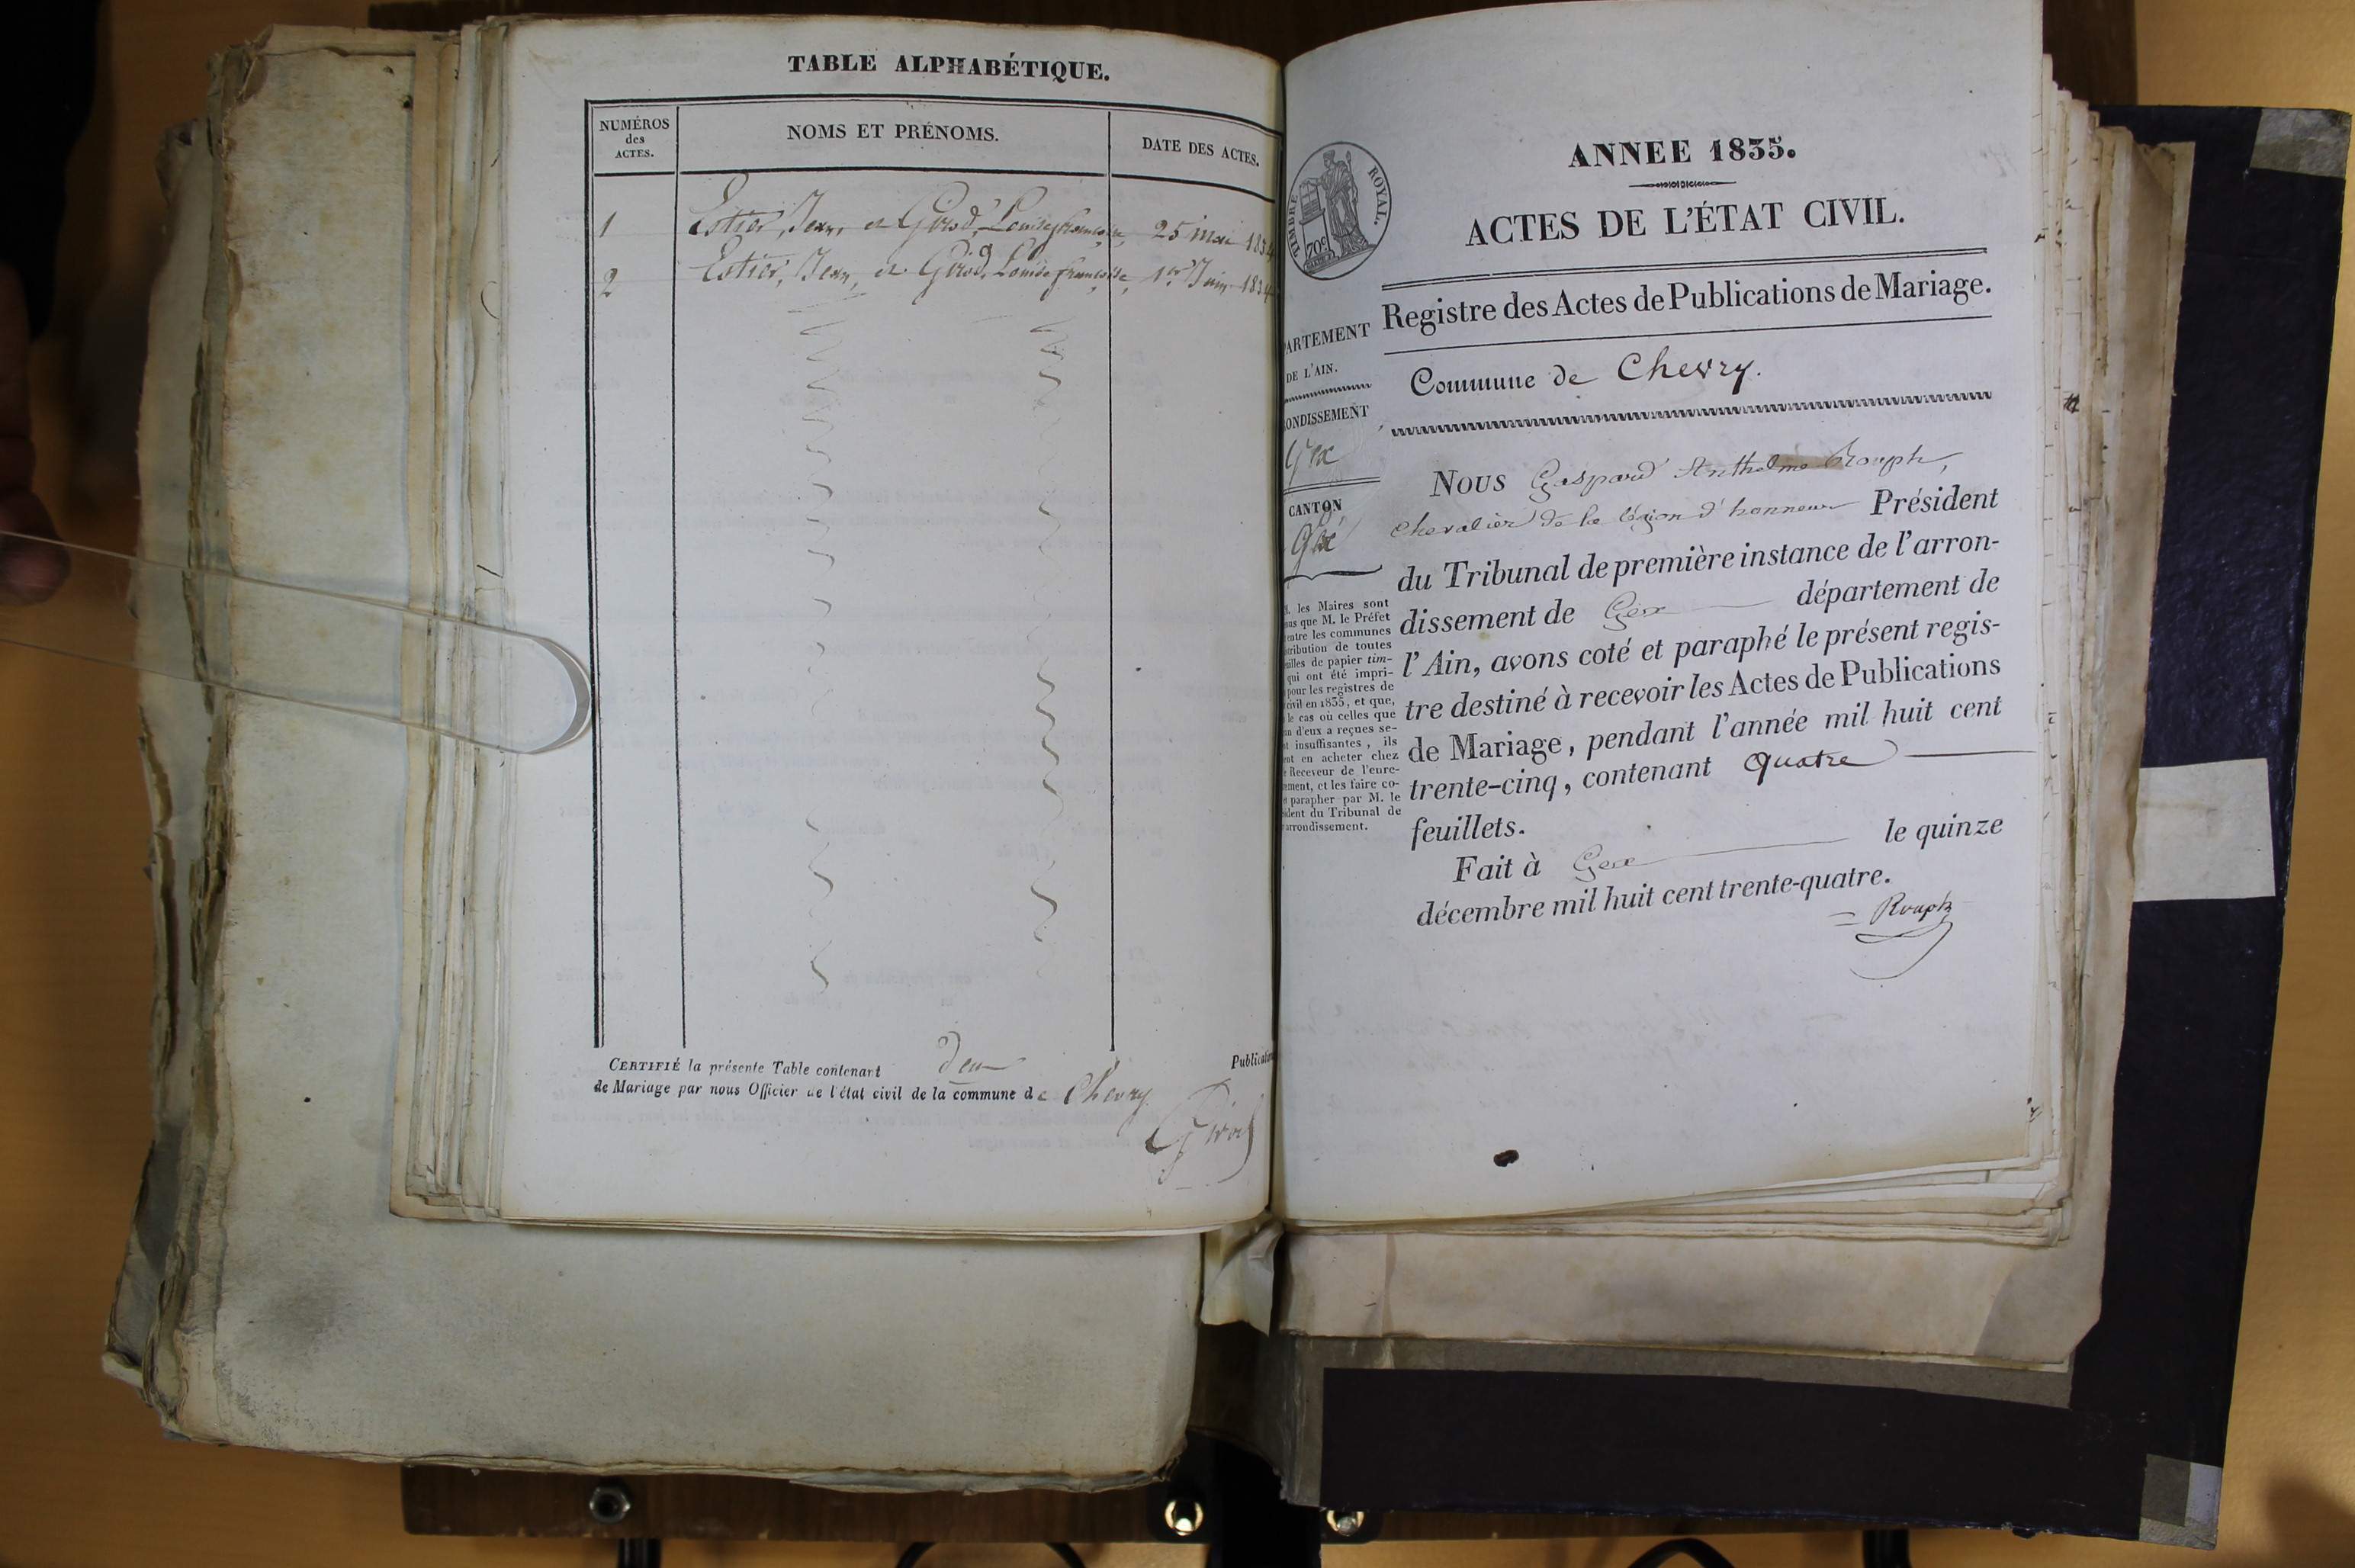 TABLE ALPHABÉTIQUE.
NUMÉROS
des
ACTES.
NOMS ET PRÉNOMS.
DATE DES ACTES.
1 Estier, Jean, et Girod, Louise francoise, 25 mai 1834
2 Estier, Jean, et Girod, Louise francoise, 1er Juin 1834
CERTIFIÉ la présente Table contenant deux Publication
de Mariage par nous Officier de l'état civil de la commune de Chevry.
Girod
TIMBRE ROYAL.
70c
ANNEE 1835.
ACTES DE L'ÉTAT CIVIL.
Registre des Actes de Publications de Mariage.
Commune de Chevry.
ARTEMENT
DE L'AIN.
ONDISSEMENT
Gex
CANTON
Gex
les Maires sont
que M. le Préfet
les communes
tribution de toutes
illes de papier tim-
qui ont été impri-
pour les registres de
civil en 1835, et que,
le cas où celles que
d'eux a reçues se-
insuffisantes, ils
en acheter chez
Receveur de l'enre-
ement, et les faire co-
parapher par M. le
ident du Tribunal de
arrondissement.
NOUS Gaspard Anthelme Rouph,
chevalier de la légion d'honneur Président
du Tribunal de première instance de l'arron-
dissement de Gex département de
l'Ain, avons coté et paraphé le présent regis-
tre destiné à recevoir les Actes de Publications
de Mariage, pendant l'année mil huit cent
trente-cinq, contenant quatre
feuillets.
Fait à Gex le quinze
décembre mil huit cent trente-quatre.
Rouph